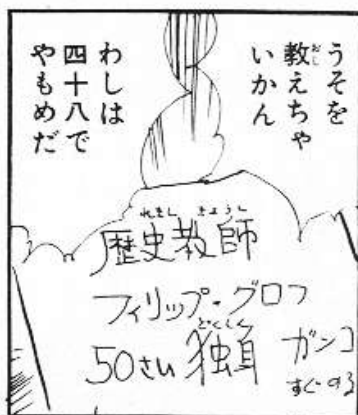 うそを
教えちゃ
いかん
わしは
四十八で
やもめだ
歴史教師
フィリップ・グロフ
50さい 独身 ガンコ
すぐのる